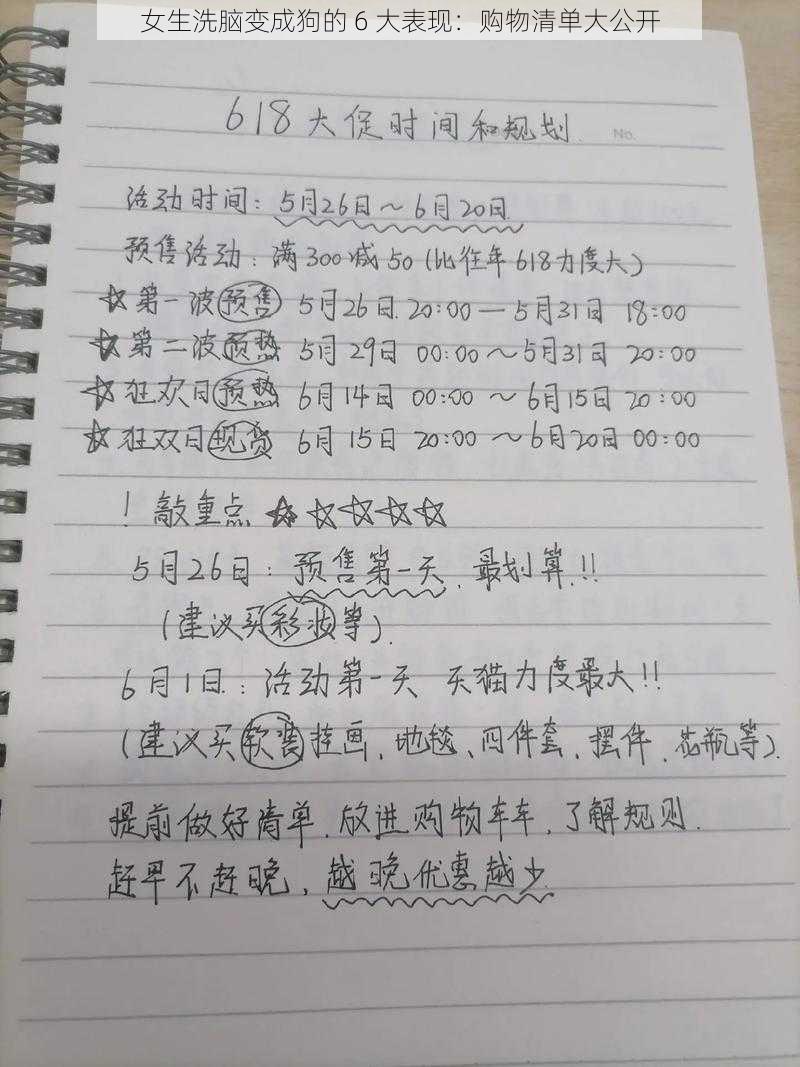 女生洗脑变成狗的 6 大表现：购物清单大公开
618大促时间和规划.
No.
活动时间：5月26日～6月20日
预售活动：满300减50（比往年618力度大）
☆第一波预售 5月26日 20:00—5月31日 18:00
☆第二波预热 5月29日 00:00～5月31日 20:00
☆狂欢日预热 6月14日 00:00～6月15日 20:00
☆狂双日现货 6月15日 20:00～6月20日 00:00
！敲重点 ☆☆☆☆☆
5月26日：预售第一天，最划算!!
（建议买彩妆等）.
6月1日：活动第一天 天猫力度最大!!
（建议买软装挂画、地毯、四件套、摆件、花瓶等）.
提前做好清单，放进购物车车，了解规则.
赶早不赶晚，越晚优惠越少